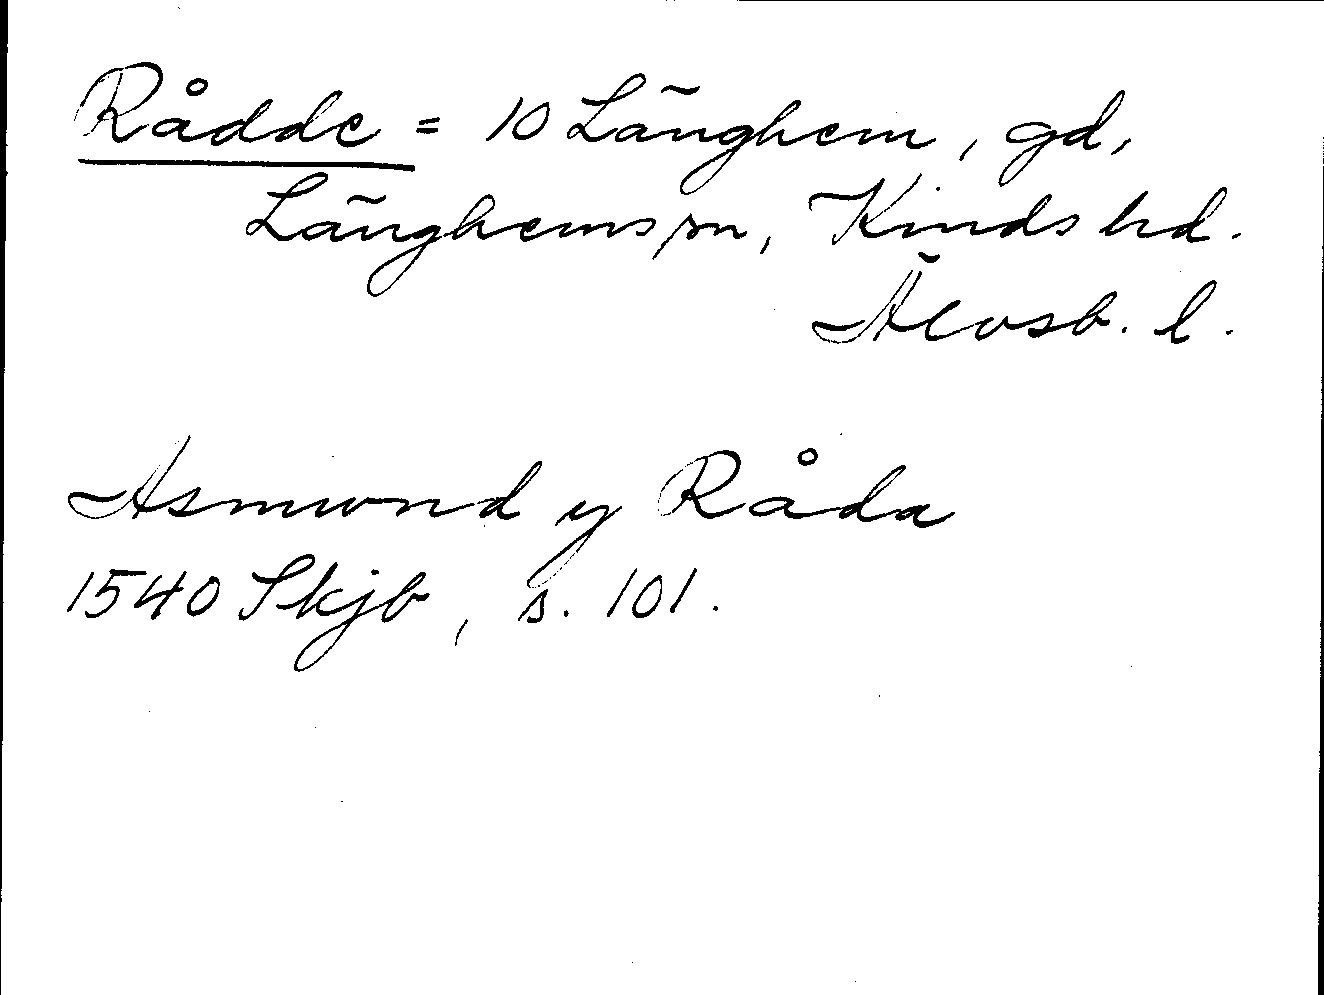 Rådde = 10 Länghem, gd,
Länghems sn, Kinds hd.
Älvsb. l.
Asmund y Råda
1540 Skjb, s. 101.